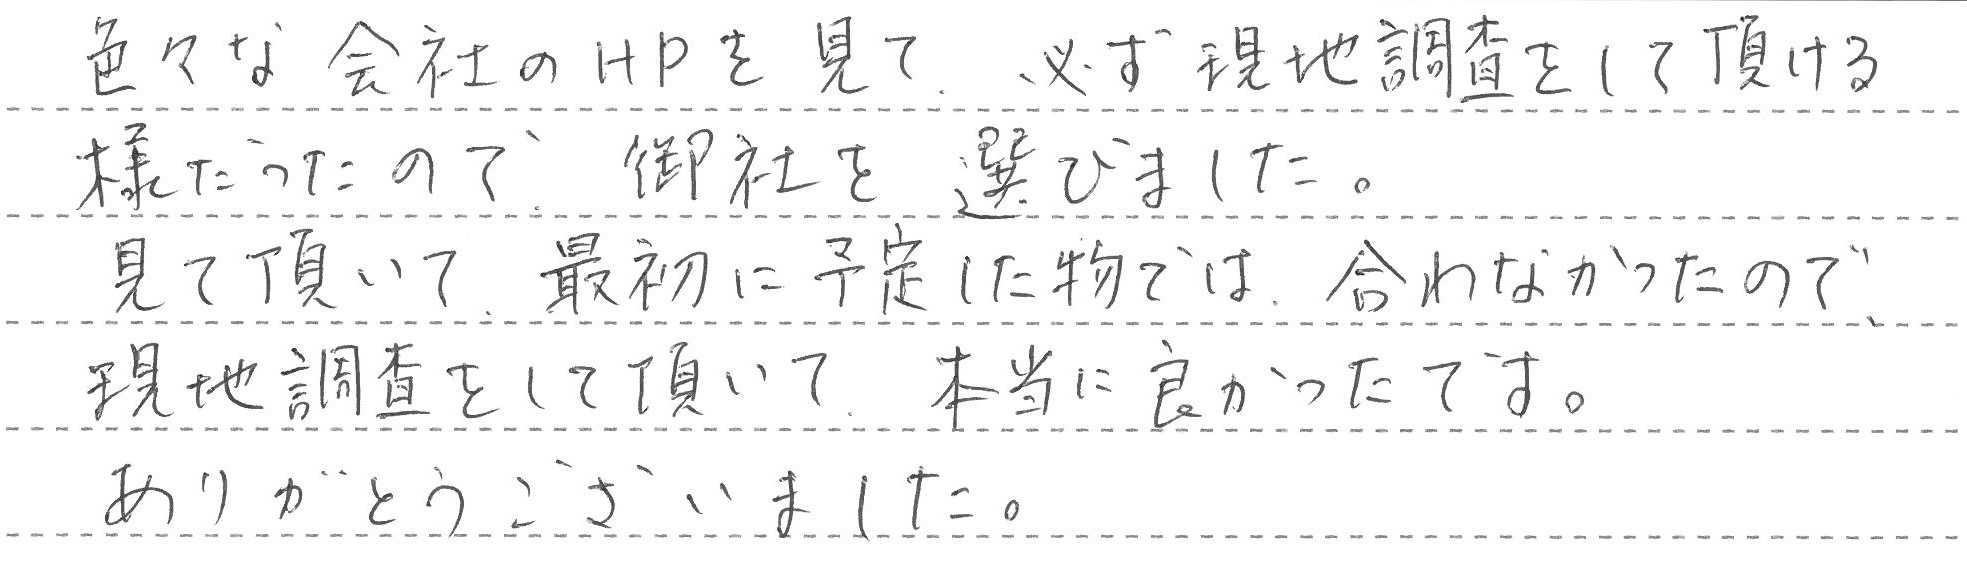 色々な会社のHPを見て、必ず現地調査をして頂ける
様だったので、御社を選びました。
見て頂いて、最初に予定した物では、合わなかったので、
現地調査をして頂いて、本当に良かったです。
ありがとうございました。